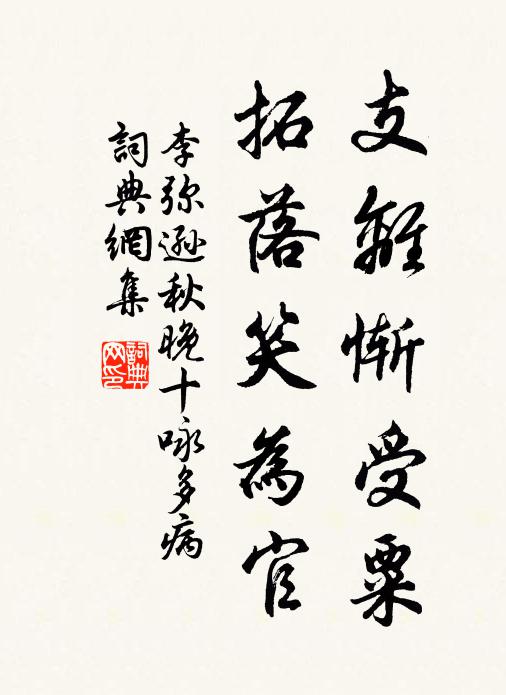 支離慚受粟
拓落笑為官
李弥遜秋晚十詠多病
詞典網集
詞典網印